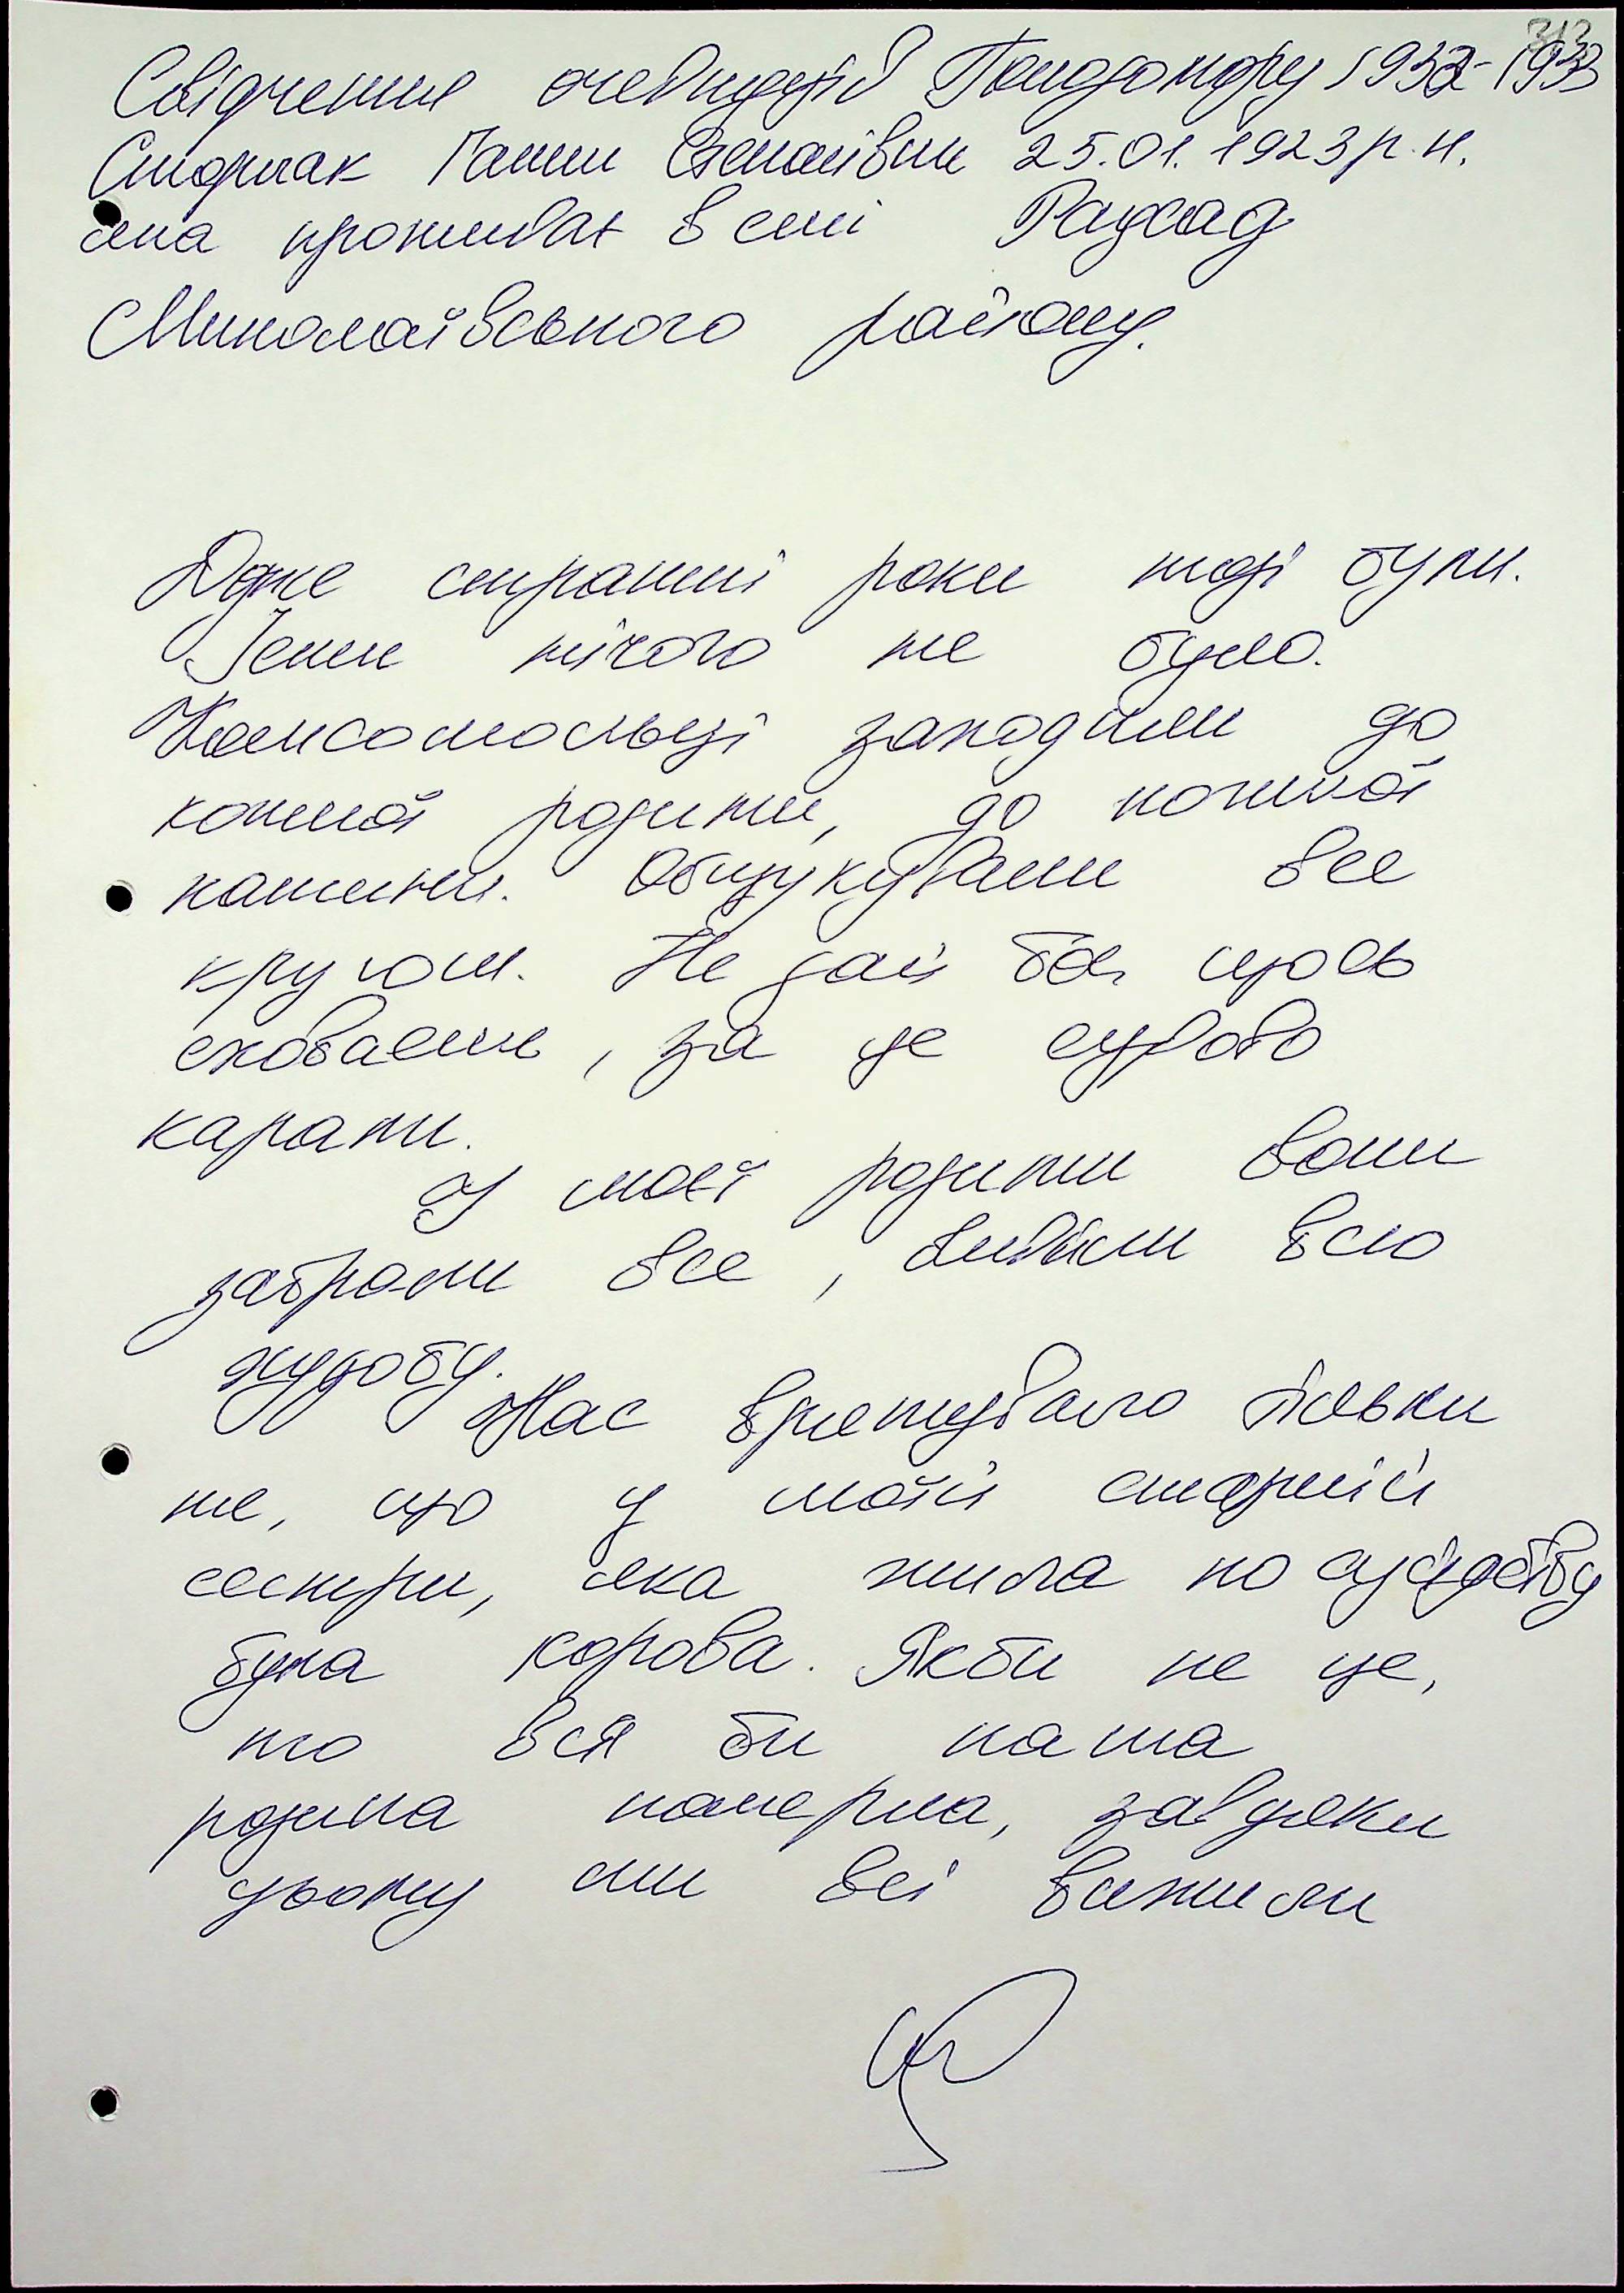 313
Свідчення очевидців Голодомору 1932-1933
Сторчак Ганни Степанівни 25.01.1923 р.н.
яка проживає в селі Радсад
Миколаївського району.
Дуже страшні роки тоді були.
Їсти нічого не було.
Комсомольці заходили до
кожної родини, до кожної
хатини. Обшукували все
кругом. Не дай бог щось
сховаєш, за це сурово
карали.
У моєї родини вони
забрали все, вивели всю
худобу.
Нас врятувало тільки
те, що у моїй старшій
сестри, яка жила по сусідству
була корова. Якби не це,
то вся би наша
родина померла, завдяки
цьому ми всі вижили